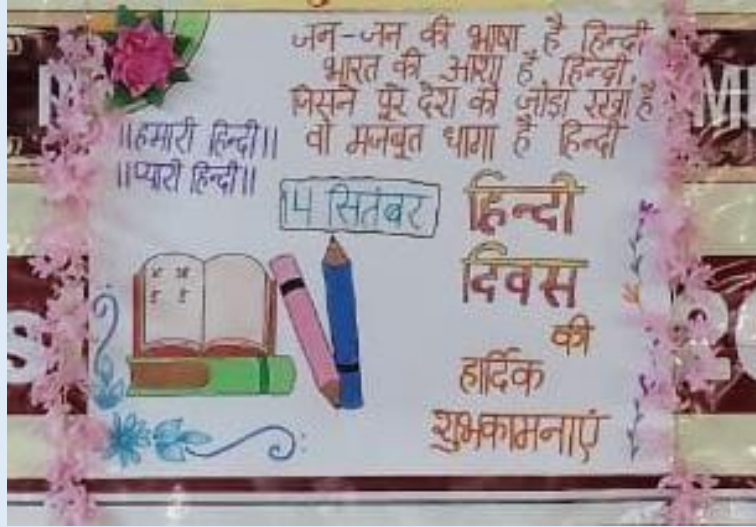 जन-जन की भाषा है हिन्दी
भारत की आशा है हिन्दी,
जिसने पूरे देश को जोड़ा रखा है
वो मजबूत धागा है हिन्दी
॥हमारी हिन्दी॥
॥प्यारी हिन्दी॥
14 सितंबर
हिन्दी
दिवस
की
हार्दिक
शुभकामनाएं